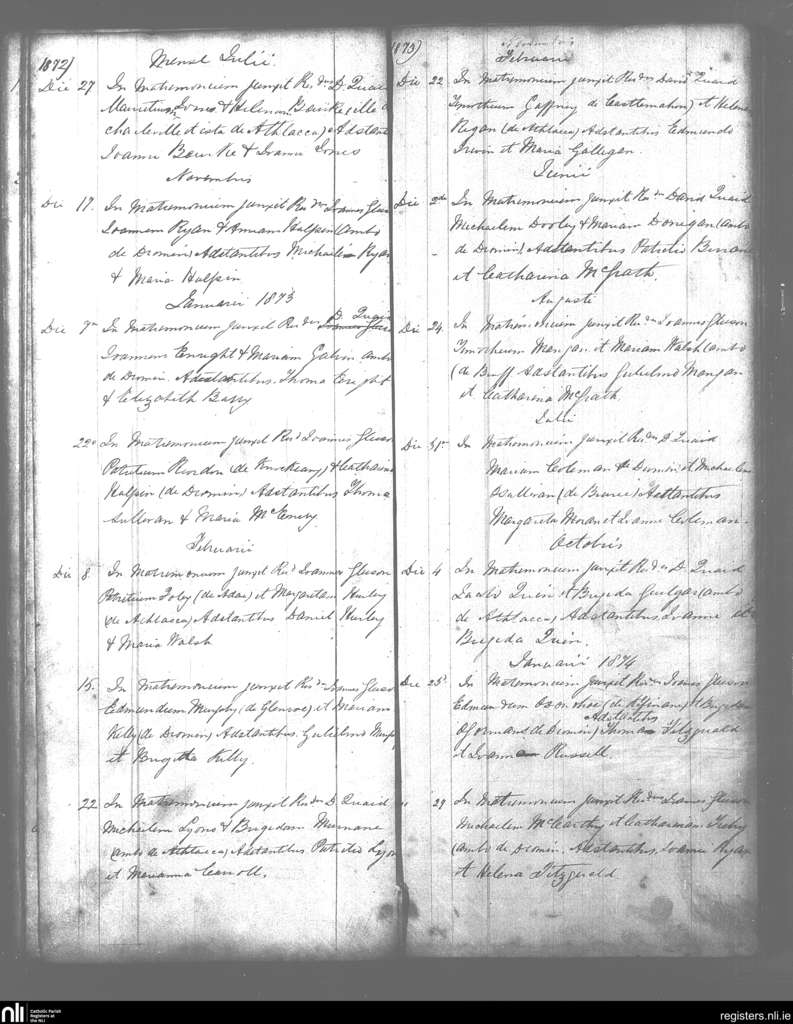 1872)
Mense Julii.
Die 27 In Matrimonium junxit Revdus D. Quaid
Mauritium Jones & Helenam Bourke, ille
charleville et ista de Athlacca) Adstant
Joanne Bourke & Joanna Jones
Novembris
Die 17. In Matrimonium junxit Revdus Joannes Glees
Joannem Ryan & Annam Halpin (ambo
de Dromin) Adstantibus Michaele Ryan
& Maria Halpin
Januarii 1873
Die 7a In Matrimonium junxit Revdus D. Quaid
Joannem Enright & Mariam Galvin ambo
de Dromin. Adstantibus. Thoma Enright
& Elizabeth Barry
22o In Matrimonium junxit Revd Joannes Gleeson
Patritium Riordon (de Knockeany) & Catharina
Halpin (de Dromin) Adstantibus Thoma
Sullivan & Maria McEnery
Februarii
Die 8 In Matrimonium junxit Revd Joannes Gleeson
Patritium Foley (de Adar) et Margaretam Hurley
(de Athlacca) Adstantibus Daniel Hurley
& Maria Walsh
15. In Matrimonium junxit Revdus Joannes Gleeson
Edmundum Murphy (de Glenroe) et Mariam
Kelly (de Dromin) Adstantibus. Gulielmo Murp
et Brigitta Kelly.
22 In Matrimonium junxit Revdus D Quaid
Michaelem Lyons & Brigidam Murnane
(ambo de Athlacca) Adstantibus Patritio Lyon
et Marianna Carroll.
1873)
Februarii
Die 22 In Matrimonium junxit Revdus David Quaid
Timotheum Gaffney de Castlemahon) et Helena
Regan (de Athlacca) Adstantibus Edmundo
Irwin et Maria Gallegan.
Junii
Die 2da In Matrimonium junxit Revdus David Quaid
Michaelem Dooley & Mariam Donigan (ambo
de Dromin) Adstantibus Patritio
et Catharina McGrath.
Augusti
Die 24. In Matrimonium junxit Revdus Joannes Gleeson
Timotheum Mangan et Mariam Walsh (ambo
(de Bruff Adstantibus Gulielmo Mangan
et Catharina McGrath
Julii
Die 31o In Matrimonium junxit Revdus D Quaid
Mariam Coleman de Dromin et Michaelem
OSullivan (de Bruree) Adstantibus
Margarita Moran et Joanne Coleman.
Octobris
Die 4 In Matrimonium junxit Revdus D Quaid
Jacobo Quin et Brigida (ambo
de Athlacca) Adstantibus, Joanne et
Brigida Quin.
Januarii 1874
Die 25o In Matrimonium junxit Revdus Joannes Gleeson
Edmundum (de Effinam) et Brigidam
OGorman (de Dromin) Adstantibus Thoma Fitzgerald
& Joanna Russell.
" 29 In Matrimonium junxit Revdus Joannes Gleeson
Michaelem McCarthy et Catharinam
(ambo de Dromin. Adstantibus, Joanne Ryan
et Helena Fitzgerald
nli
Catholic Parish
Registers at
the NLI
registers.nli.ie